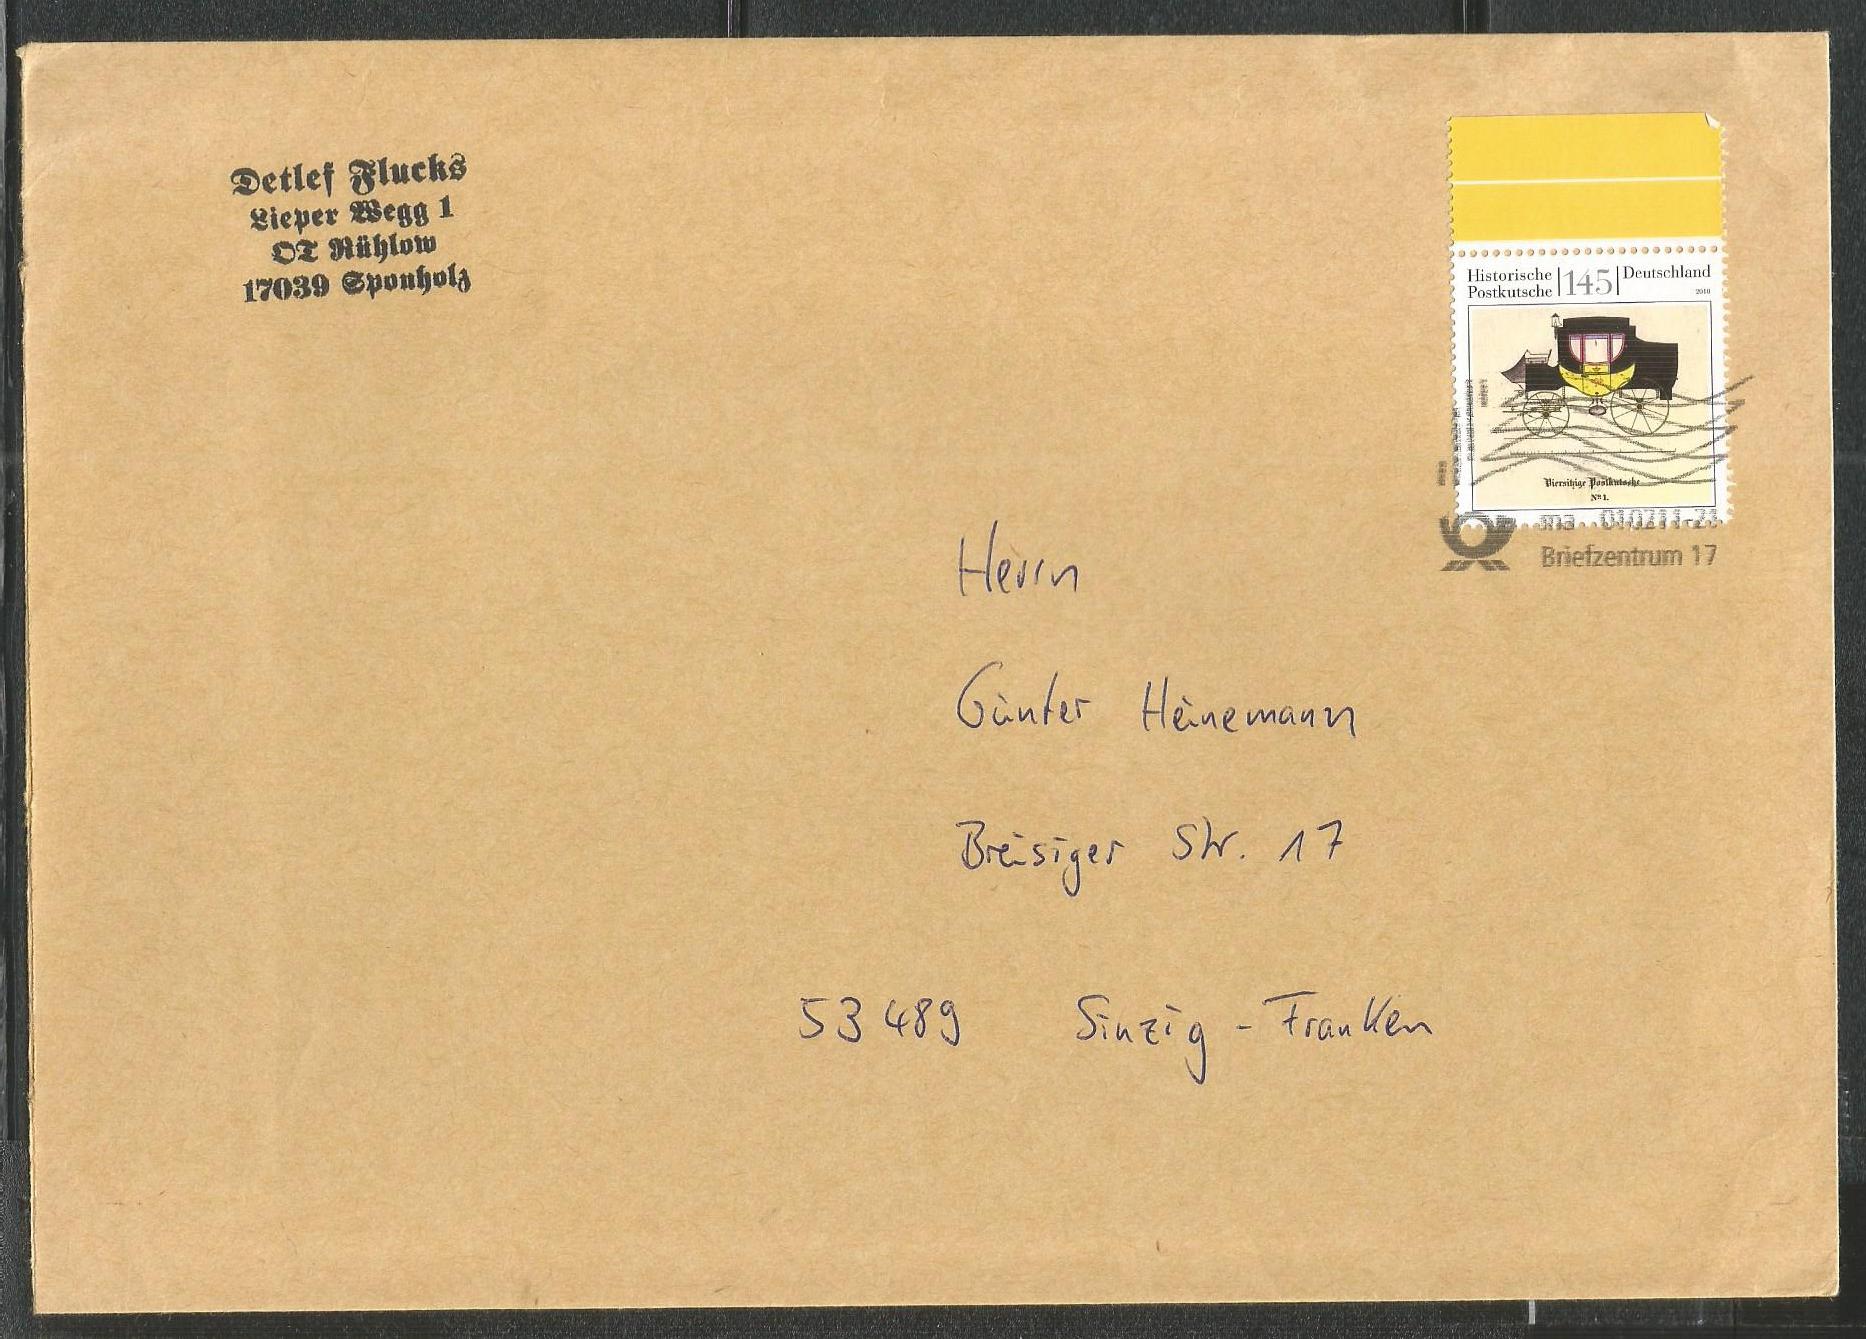 Detlef Flucks
Lieper Wegg 1
OT Rühlow
17039 Sponholz
Historische Postkutsche
145
Deutschland
2010
Viersitzige Postkutsche
No 1.
Briefzentrum 17
Herrn
Günter Heinemann
Breisiger Str. 17
53489 Sinzig - Franken